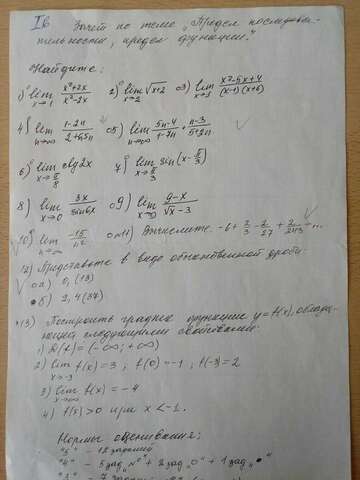 Iв Зачет по теме „Предел последова-
тельности, предел функции."
Найдите:
1)° lim x→1 (x²+2x)/(x²-2x) 2)° lim x→2 √(x+2) 3) lim x→1 (x²-5x+4)/((x-1)(x+6))
4) lim n→∞ (1-2n)/(2+6,5n) 5) lim n→∞ (5n-4)/(1-7n) · (n-3)/(5+2n)
6)° lim x→π/8 ctg2x 7)° lim x→π/3 sin(x-π/3)
8) lim x→0 3x/sin6x 9) lim x→9 (9-x)/(√x-3)
10)° lim n→∞ -15/n² 11) Вычислите -6+2/3-2/27+2/243-...
12) Представьте в виде обыкновенной дроби:
а) 0,(13)
б) 2,4(37)
13) Построить график функции y=f(x), облада-
ющей следующими свойствами:
1) D(f)=(-∞;+∞)
2) lim x→-3 f(x)=3; f(0)=-1; f(-3)=2
3) lim x→∞ f(x)=-4
4) f(x)>0 при x<-1.
Нормы оценивания:
"5" - 12 заданий
"4" - 5 зад „№°" + 2 зад „О" + 1 зад „●"
"3" - 7 заданий